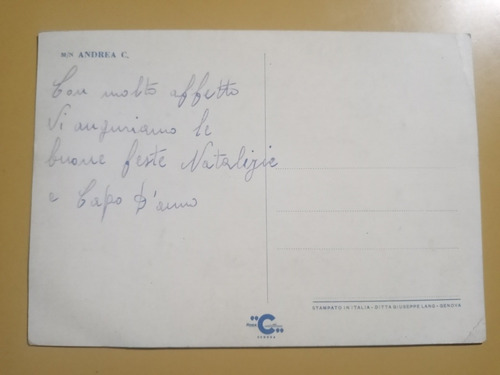 M/N ANDREA C.
Con molto affetto
Vi auguriamo le
buone feste Natalizie
e Capo D'anno
STAMPATO IN ITALIA - DITTA GIUSEPPE LANG - GENOVA
"C"
GENOVA